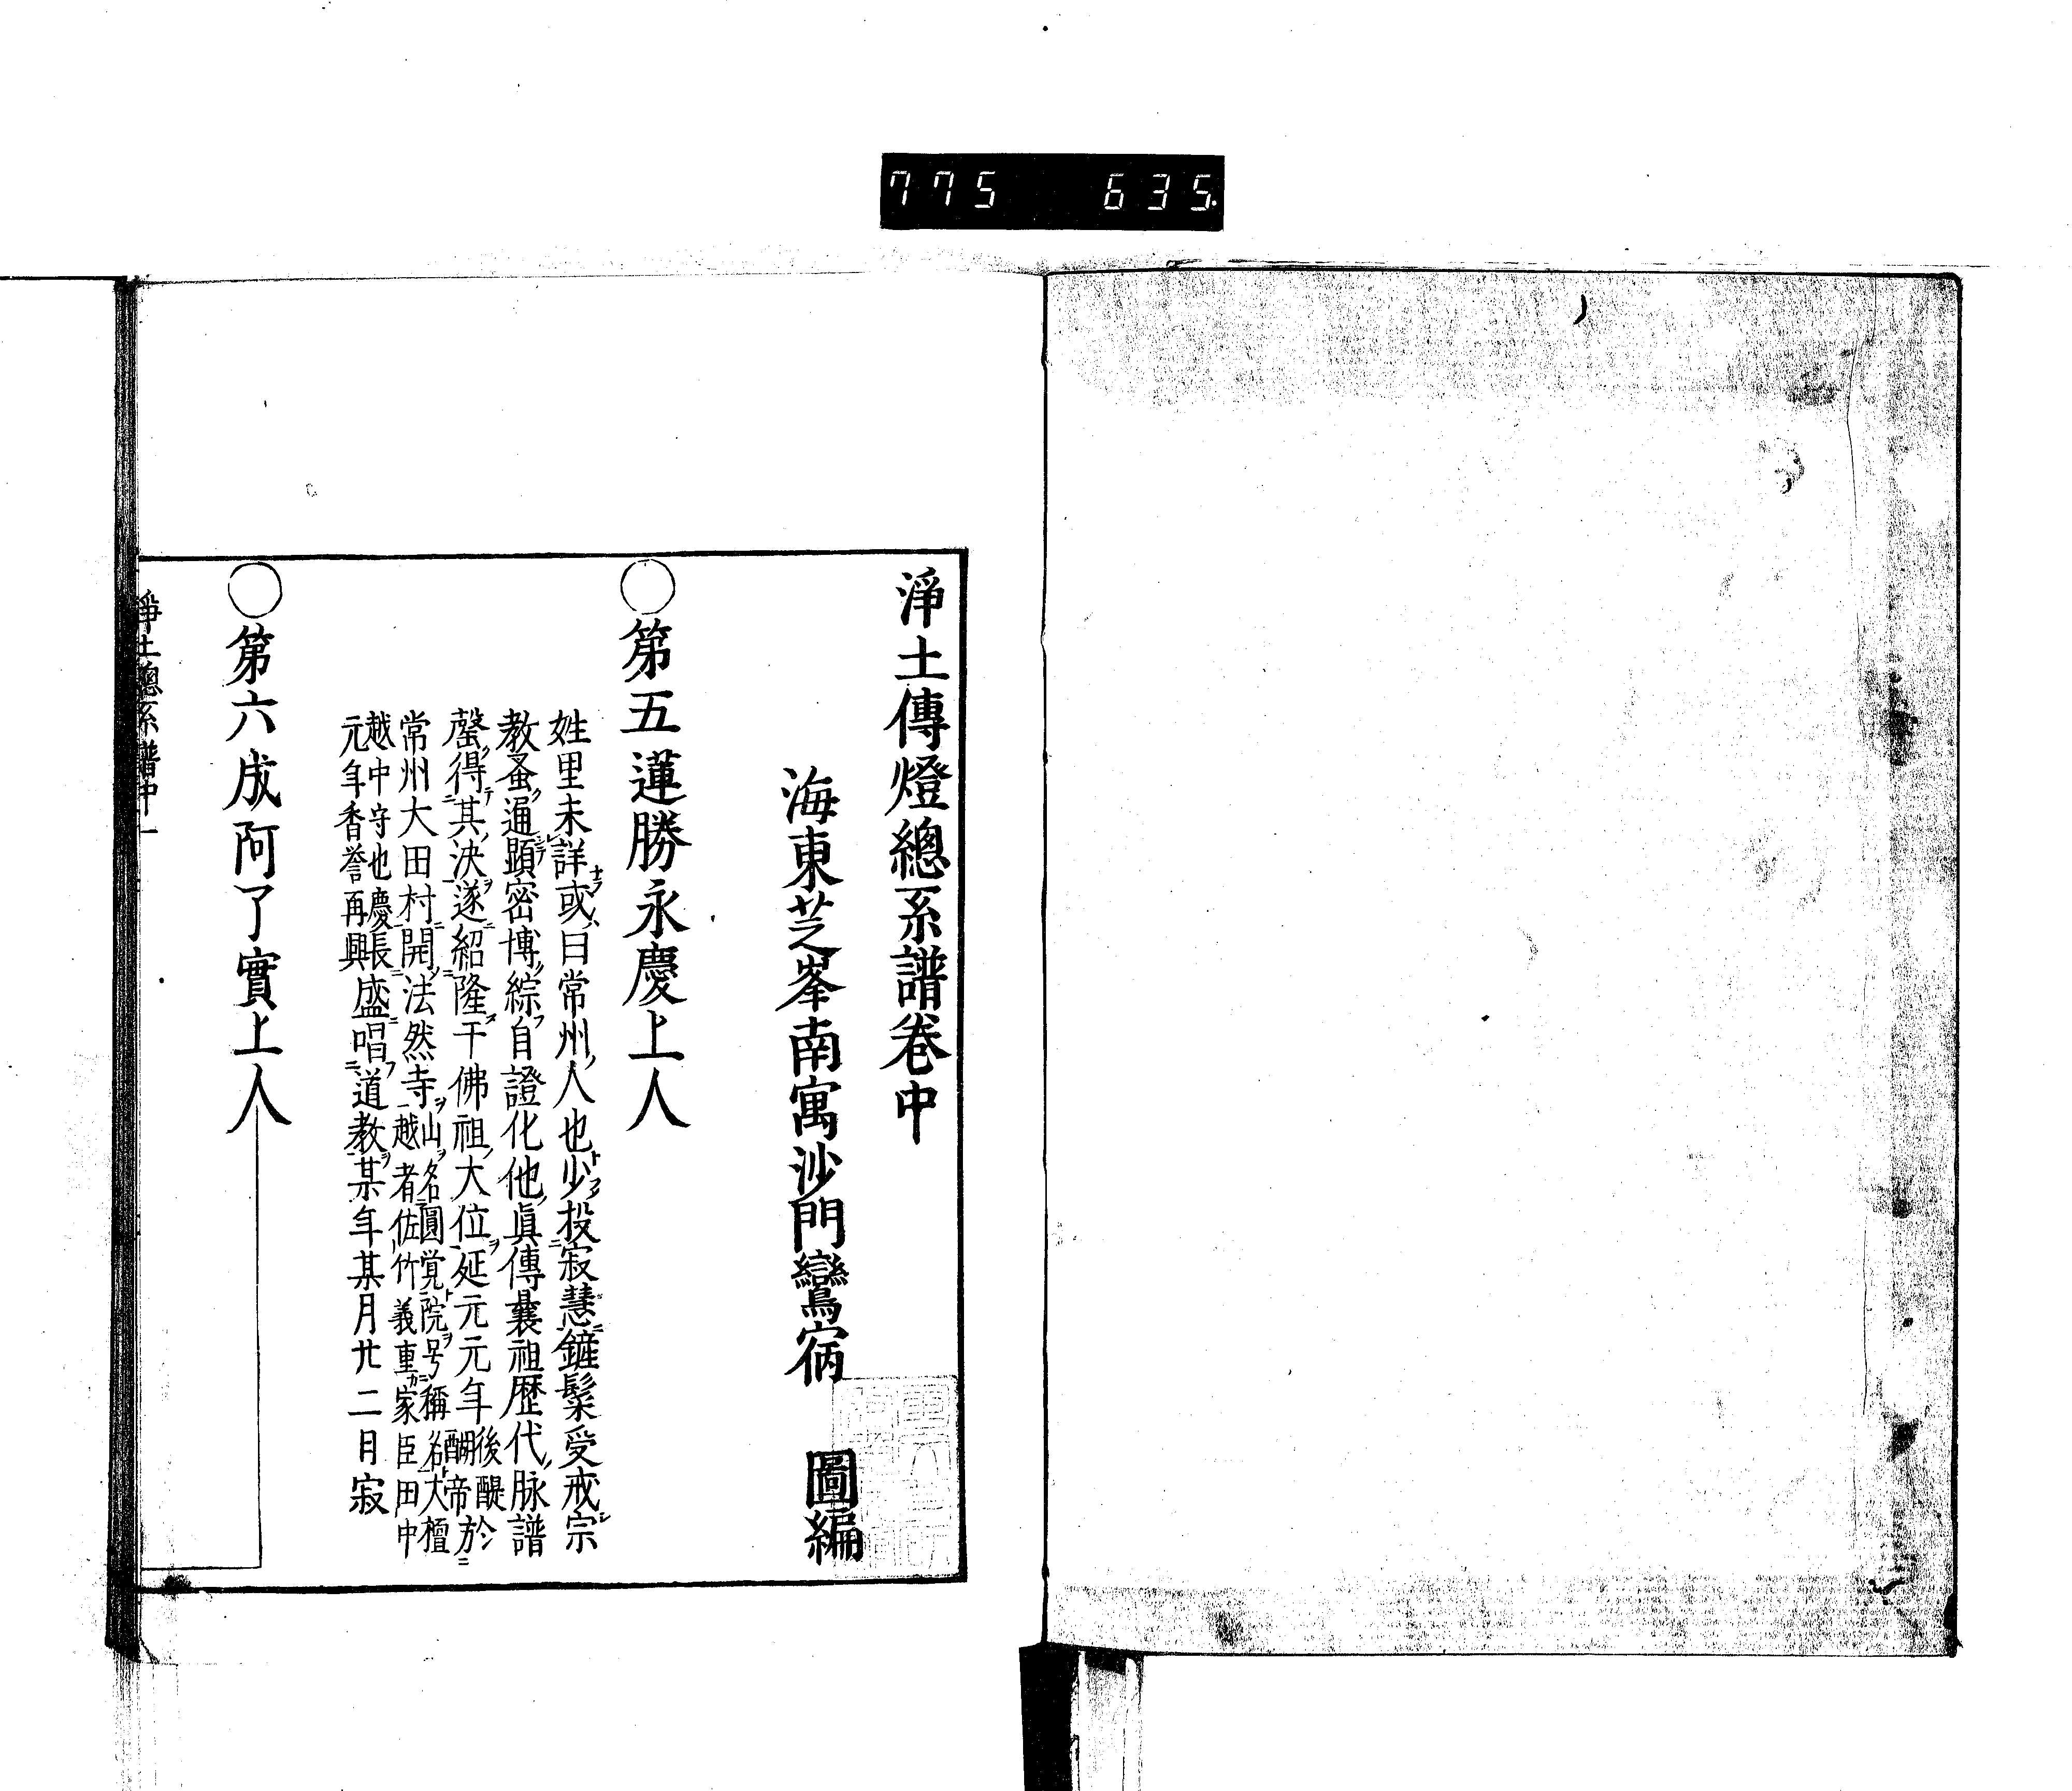 775 635.
淨土傳燈總系譜卷中
海東芝峯南寓沙門鸞宿 圖編
○第五蓮勝永慶上人
姓里未詳或曰常州人也少投寂慧鏟鬀受戒宗
教蚤通顯密博綜自證化他眞傳曩祖歷代脉譜
罄得其決遂紹隆于佛祖大位延元元年後醍醐帝於
常州大田村開法然寺山名圓覚院号稱名大檀越者佐竹義重家臣田中
越中守也慶長元年香誉再興盛唱道教某年某月廿二月寂
○第六成阿了實上人
淨土總系譜中 一